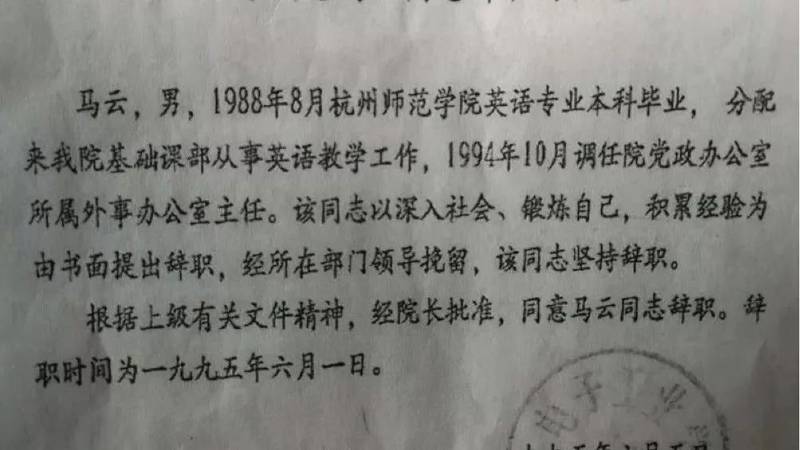 马云，男，1988年8月杭州师范学院英语专业本科毕业， 分配
来我院基础课部从事英语教学工作，1994年10月调任院党政办公室
所属外事办公室主任。该同志以深入社会、锻炼自己，积累经验为
由书面提出辞职，经所在部门领导挽留，该同志坚持辞职。
根据上级有关文件精神，经院长批准，同意马云同志辞职。辞
职时间为一九九五年六月一日。
电子工业